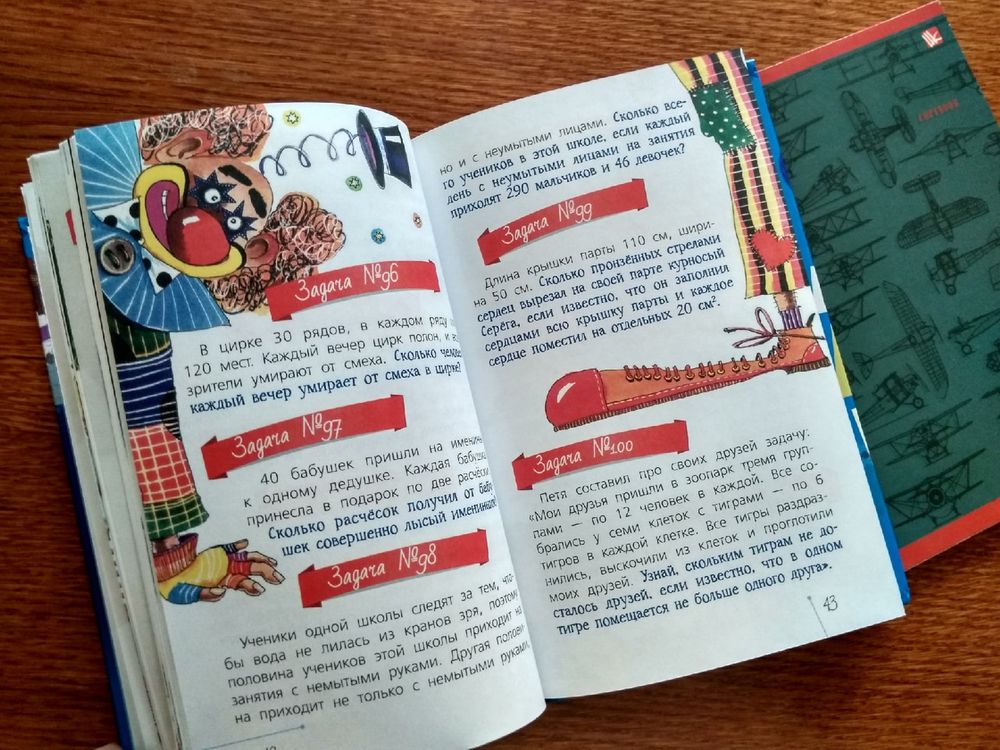 Задача №96
В цирке 30 рядов, в каждом ряду
120 мест. Каждый вечер цирк полон, и
зрители умирают от смеха. Сколько
каждый вечер умирает от смеха в цирке?
Задача №97
40 бабушек пришли на именины
к одному дедушке. Каждая бабушка
принесла в подарок по две расчёски.
Сколько расчёсок получил от бабу-
шек совершенно лысый именинник?
Задача №98
Ученики одной школы следят за тем, что-
бы вода не лилась из кранов зря, поэтому
половина учеников этой школы приходит на
занятия с немытыми руками. Другая полови-
на приходит не только с немытыми руками,
но и с неумытыми лицами. Сколько все-
го учеников в этой школе, если каждый
день с неумытыми лицами на занятия
приходят 290 мальчиков и 46 девочек?
Задача №99
Длина крышки парты 110 см, шири-
на 50 см. Сколько пронзённых стрелами
сердец вырезал на своей парте курносый
Серёга, если известно, что он заполнил
сердцами всю крышку парты и каждое
сердце поместил на отдельных 20 см².
Задача №100
Петя составил про своих друзей задачу:
«Мои друзья пришли в зоопарк тремя груп-
пами — по 12 человек в каждой. Все со-
брались у семи клеток с тиграми — по 6
тигров в каждой клетке. Все тигры раздраз-
нились, выскочили из клеток и проглотили
моих друзей. Узнай, скольким тиграм не до-
сталось друзей, если известно, что в одном
тигре помещается не больше одного друга».
43